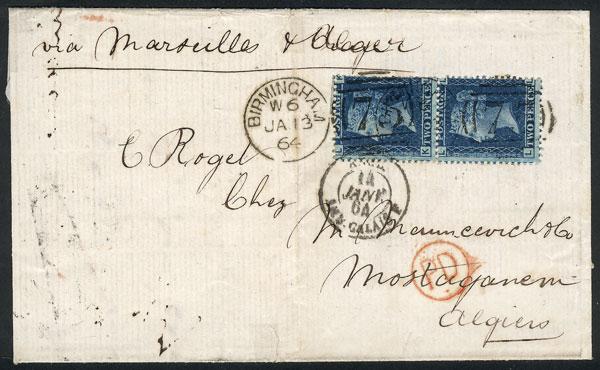 via Marseilles & Alger
BIRMINGHAM
W 6
JA 13
64
POSTAGE
TWO PENCE
POSTAGE
TWO PENCE
75
K
L
L
E Rogel
Chez
14
JANV
64
CALAIS
M
& Co
PD
Mostaganem
Algiers